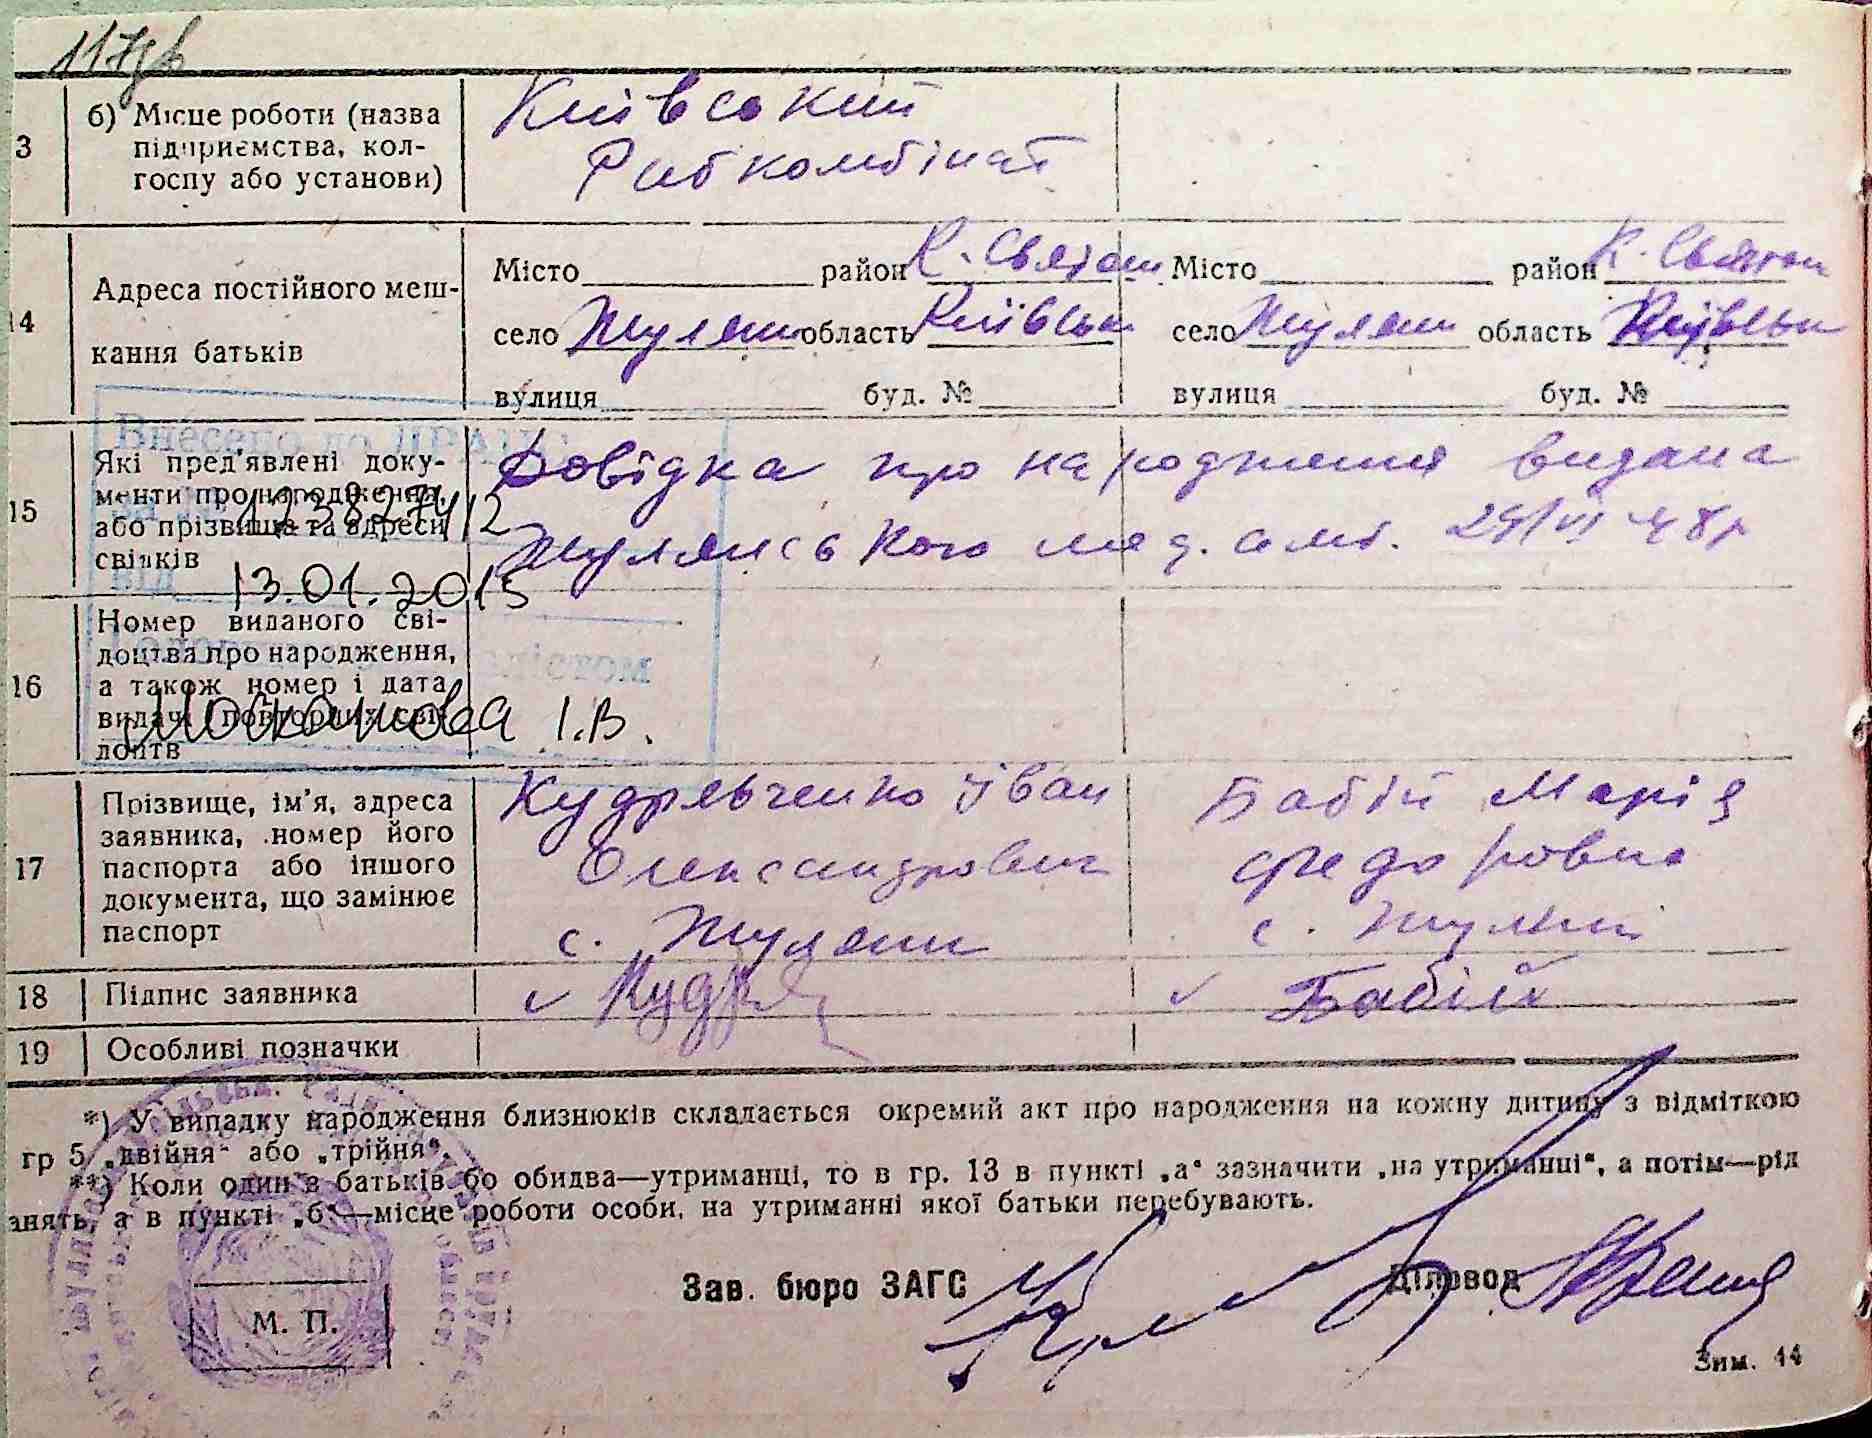 117зв
3 б) Місце роботи (назва підприємства, колгоспу або установи)
Київський
Рибкомбінат
14 Адреса постійного мешкання батьків
Місто район К. Святош Місто район К. Святош
село Жуляни область Київськ село Жуляни область Київськ
вулиця буд. № вулиця буд. №
Внесено до ДРАЦС
15 Які пред'явлені документи про народження, або прізвища та адреси свідків
Довідка про народження видана
Жулянського мед. амб. 29/VI 48р
від 13.01.2015
16 Номер виданого свідоцтва про народження, а також номер і дата видачі повторних свідоцтв
І.В.
17 Прізвище, ім'я, адреса заявника, номер його паспорта або іншого документа, що замінює паспорт
Кудрявченко Іван Бабій Марія
Олександрович Федоровна
с. Жуляни с. Жуляни
18 Підпис заявника Кудря Бабій
19 Особливі позначки
*) У випадку народження близнюків складається окремий акт про народження на кожну дитину з відміткою
гр 5 „двійня“ або „трійня“.
**) Коли один з батьків бо обидва—утриманці, то в гр. 13 в пункті „а“ зазначити „на утриманці“, а потім—рід
анять, а в пункті „б“—місце роботи особи, на утриманні якої батьки перебувають.
М. П.
Зав. бюро ЗАГС Діловод
Зим. 44